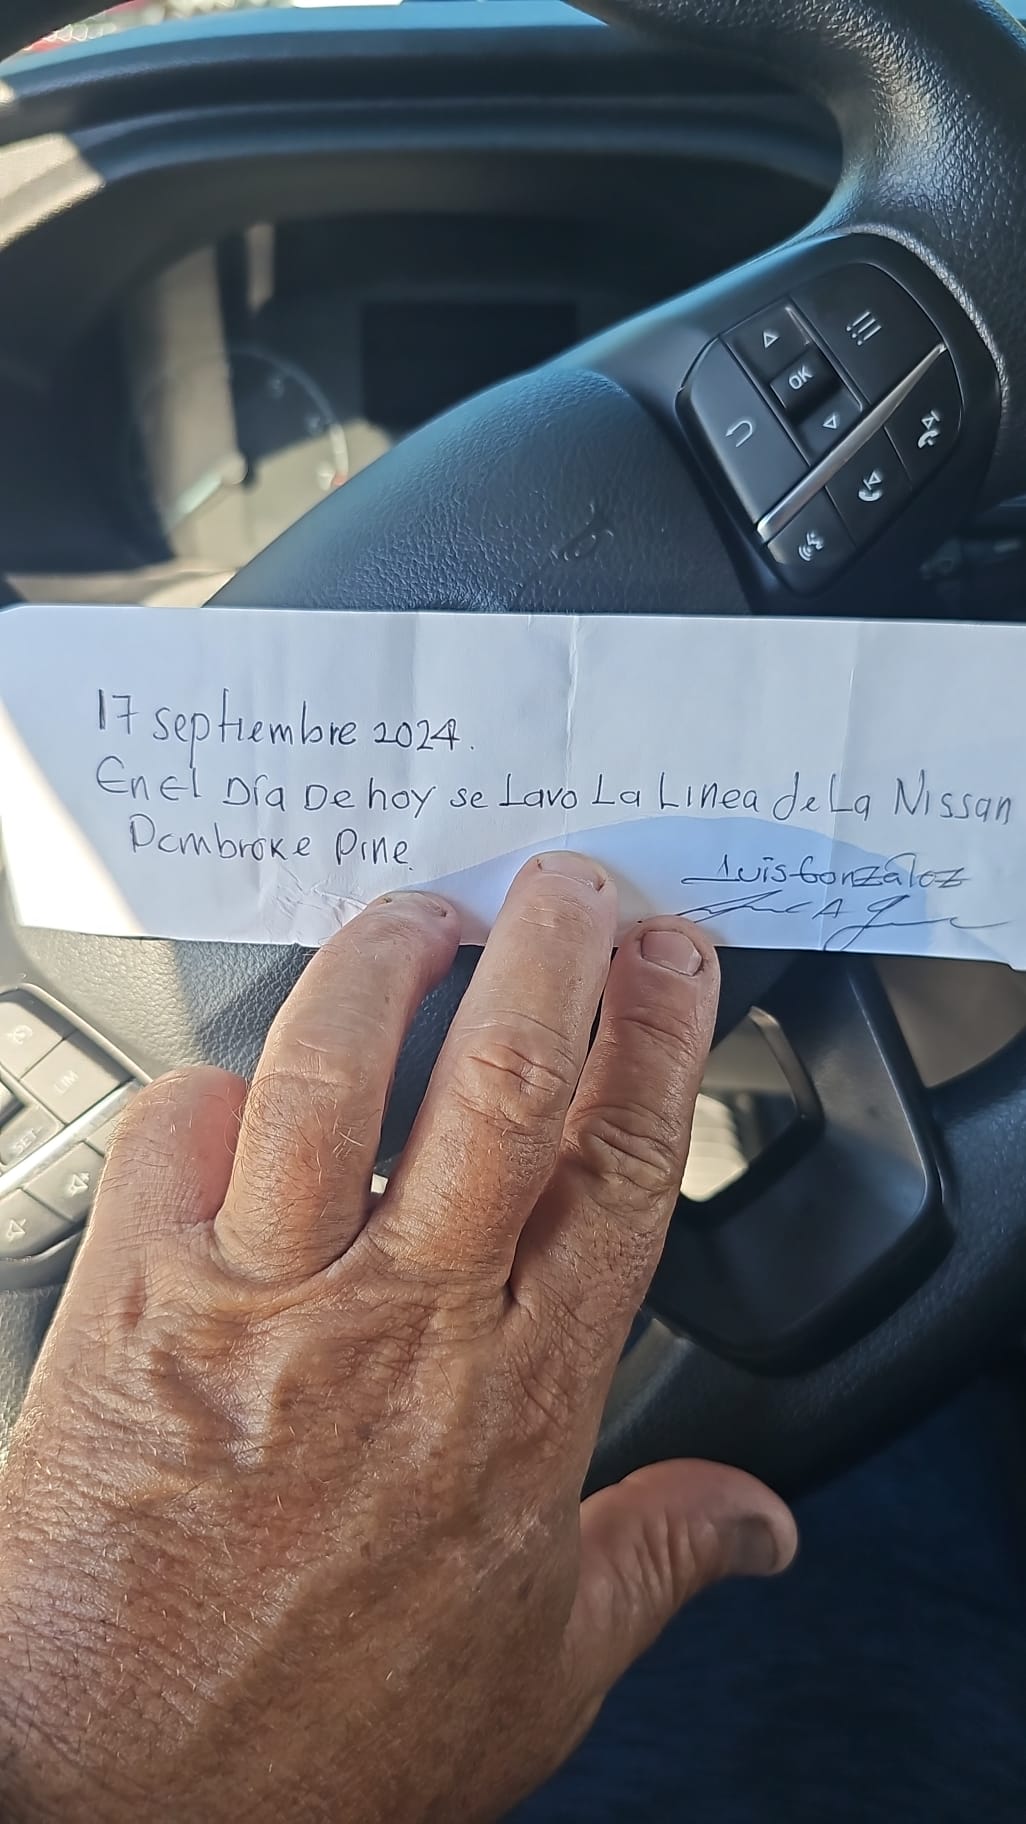 OK
17 septiembre 2024.
En el Día De hoy se Lavo La Linea de La Nissan
Pembroke Pine.
Luis Gonzáloz
LIM
SET